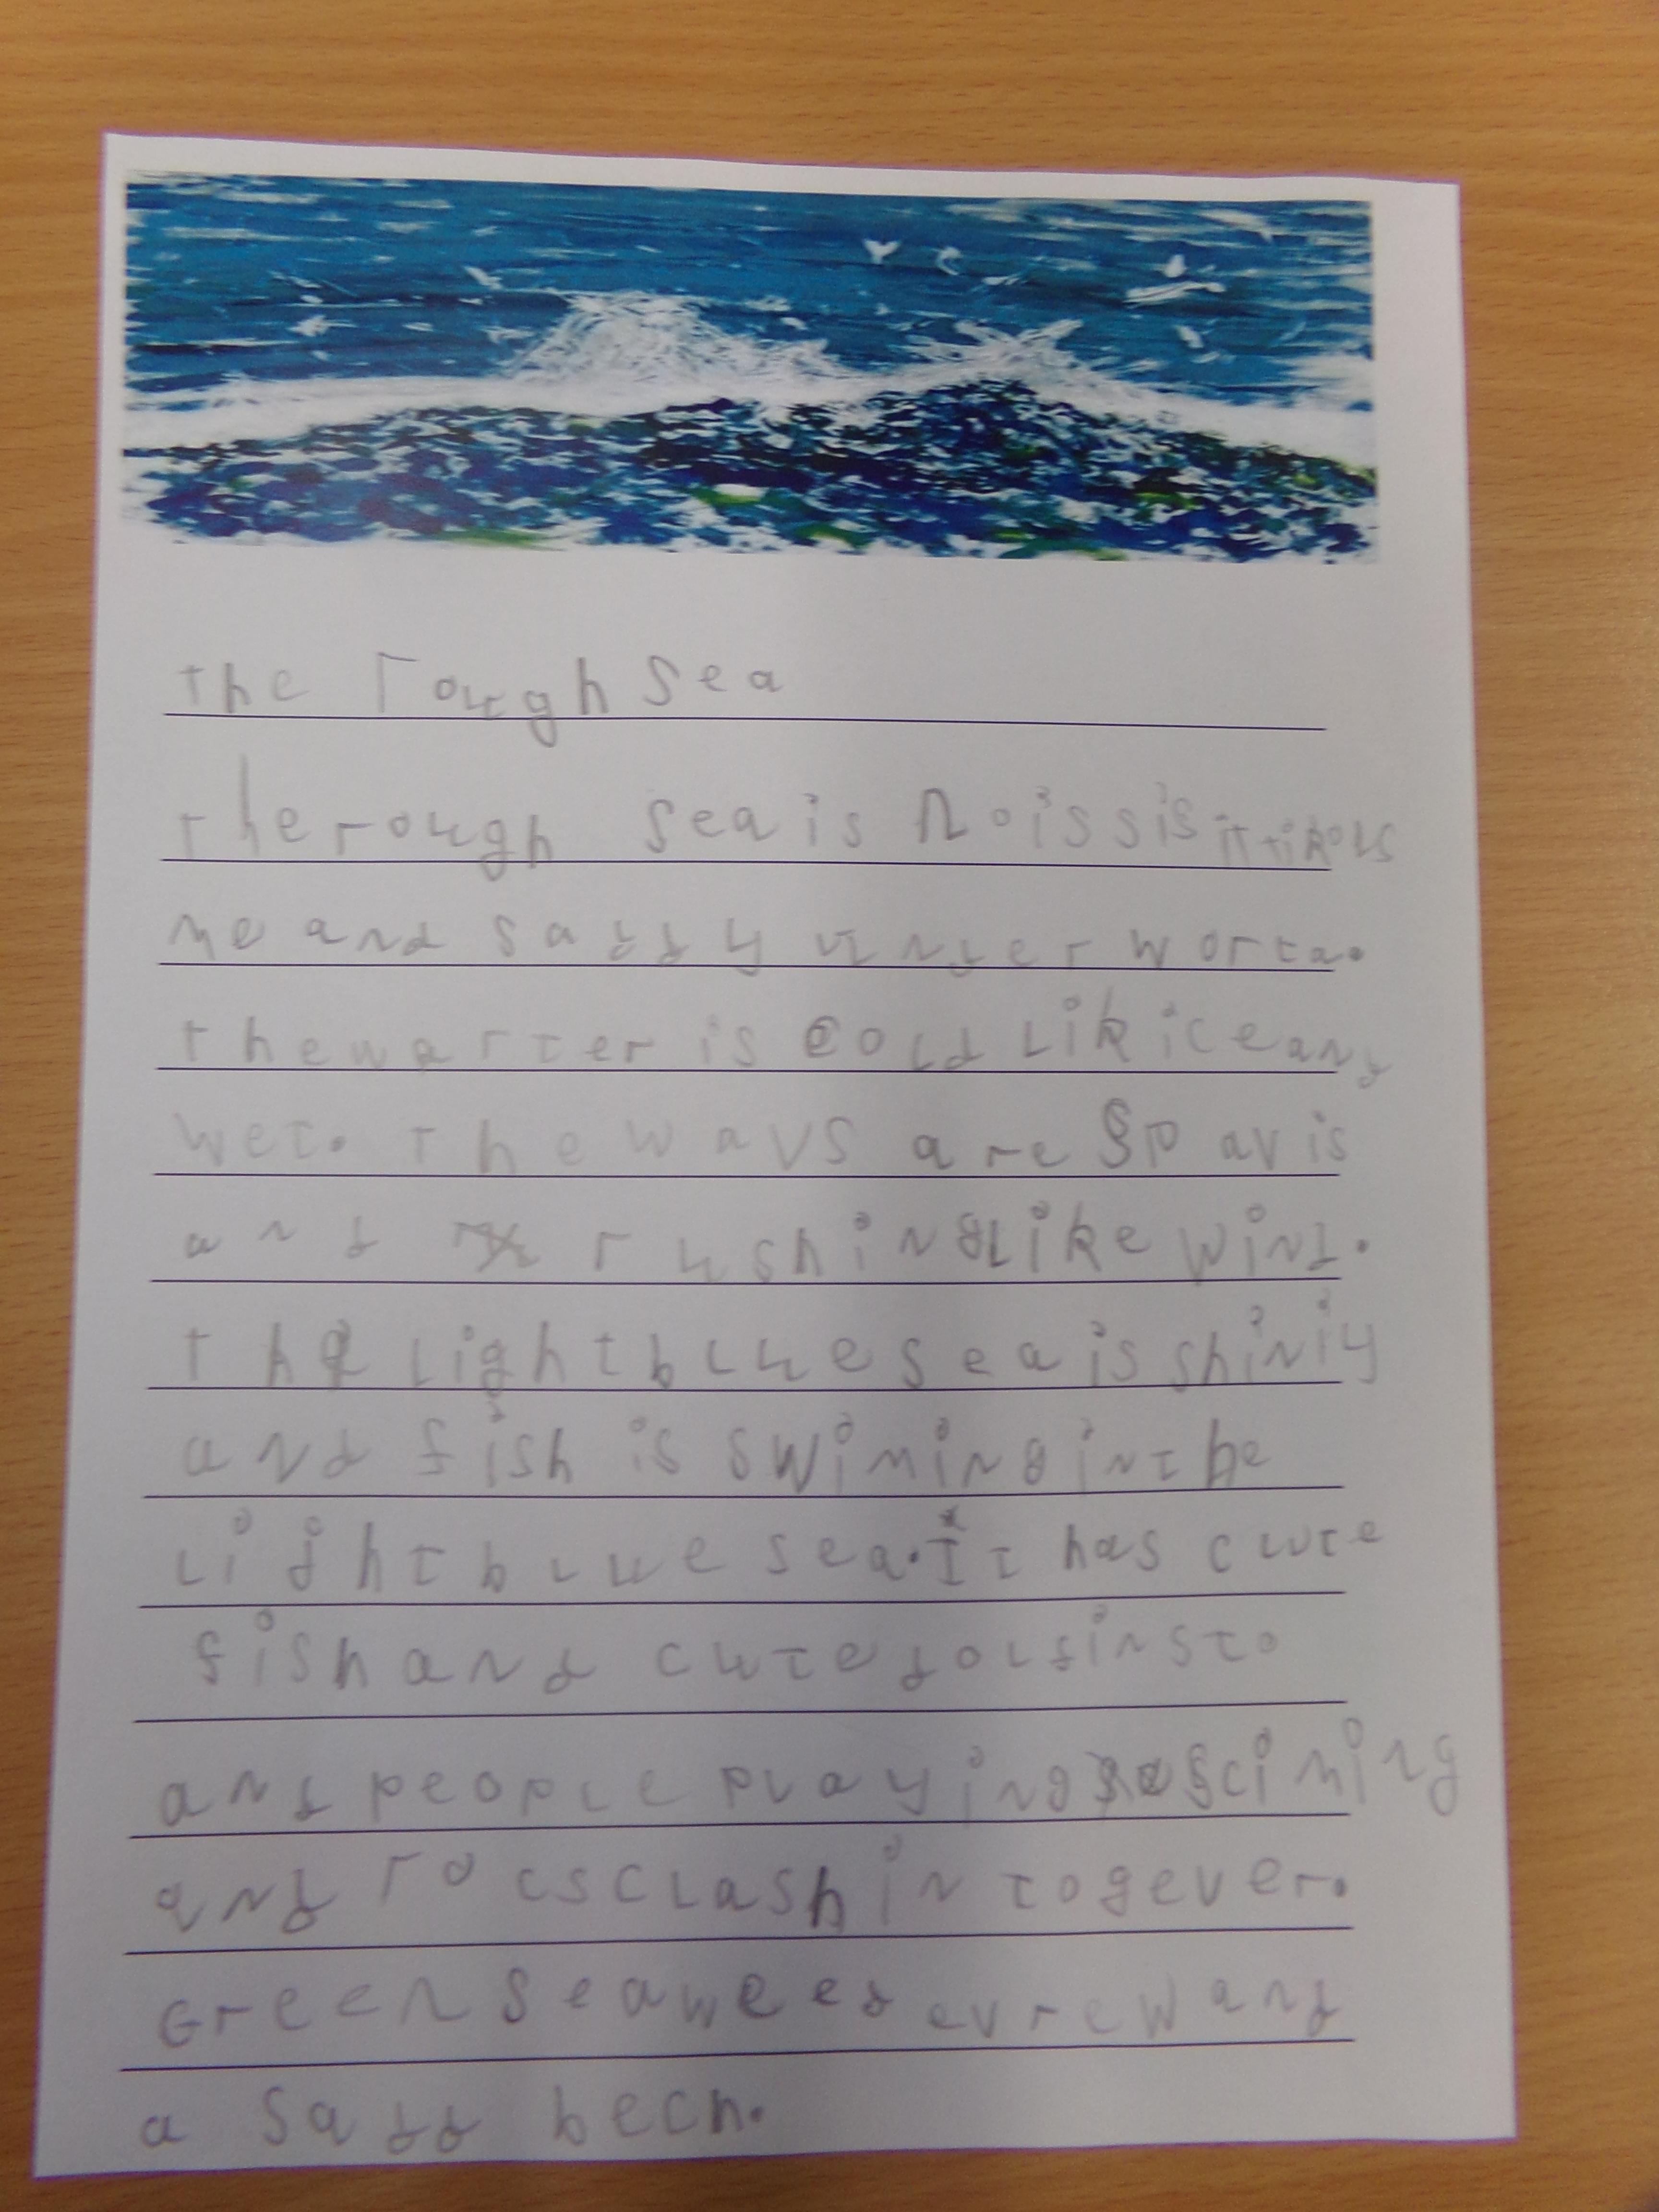 the rough sea
the rough sea is noissis it tikols
me and saddy under worta.
the warter is cold lik ice and
wet. the wavs are spavis
and rushing like wind.
the light blue sea is shiniy
and fish is swiming in the
light blue sea. It has cute
fish and cute dolfins to
and people playing sciming
and rocs clashin togever.
Green seaweed evrew and
a sadd bech.